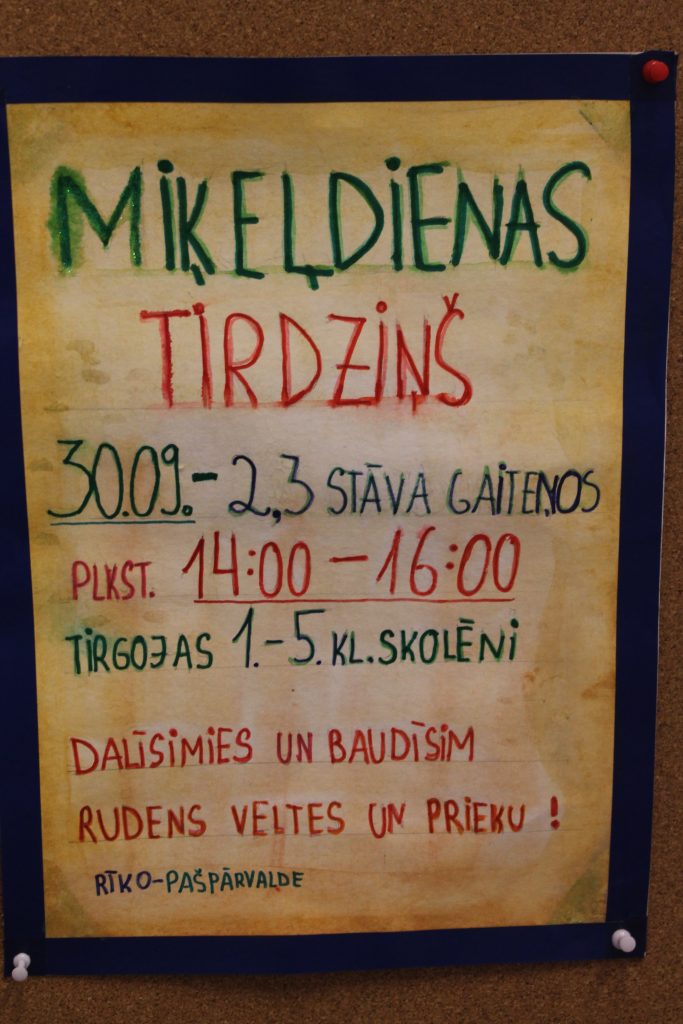 MIĶEĻDIENAS
TIRDZIŅŠ
30.09.- 2,3 STĀVA GAITEŅOS
PLKST. 14:00 – 16:00
TIRGOJAS 1.-5. KL. SKOLĒNI
DALĪSIMIES UN BAUDĪSIM
RUDENS VELTES UN PRIEKU !
RĪKO-PAŠPĀRVALDE